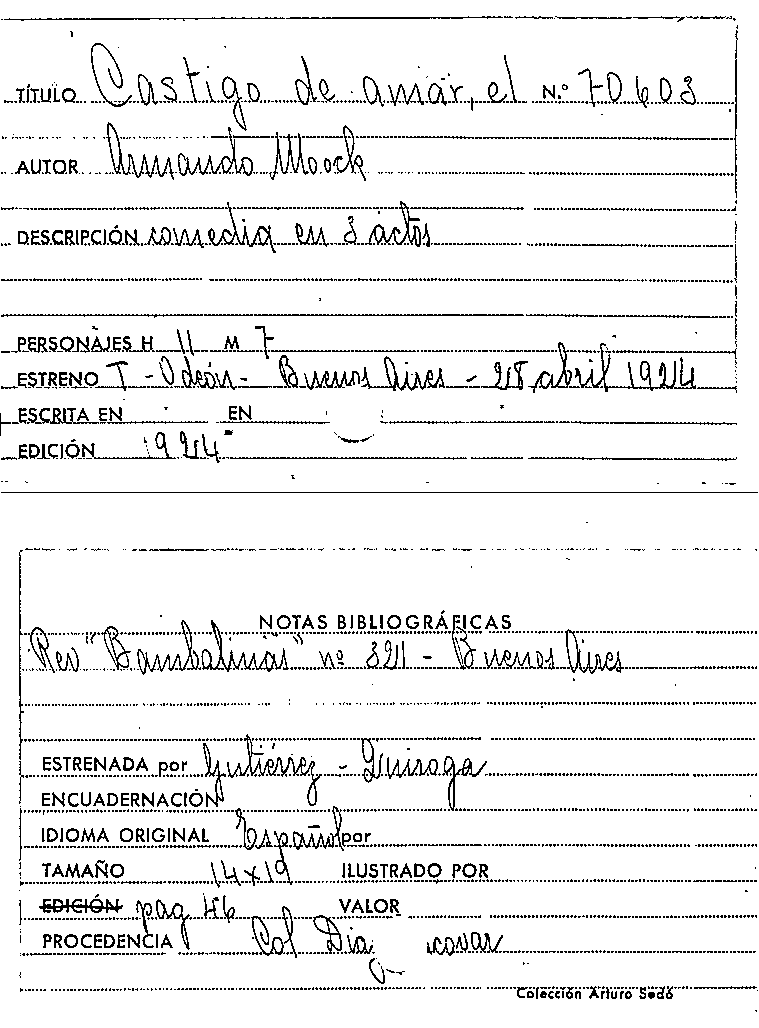 TÍTULO Castigo de amar, el N.º 70603
AUTOR Armando Moock
DESCRIPCIÓN comedia en 3 actos
PERSONAJES H 11 M 7
ESTRENO T - Odeón - Buenos Aires - 28 abril 1924
ESCRITA EN EN
EDICIÓN 1924
NOTAS BIBLIOGRÁFICAS
Rev "Bambalinas" nº 321 - Buenos Aires
ESTRENADA por Gutiérrez - Quiroga
ENCUADERNACIÓN
IDIOMA ORIGINAL Español por
TAMAÑO 14x19 ILUSTRADO POR
EDICIÓN pag 46 VALOR
PROCEDENCIA Col Diaz
Colección Arturo Sedó